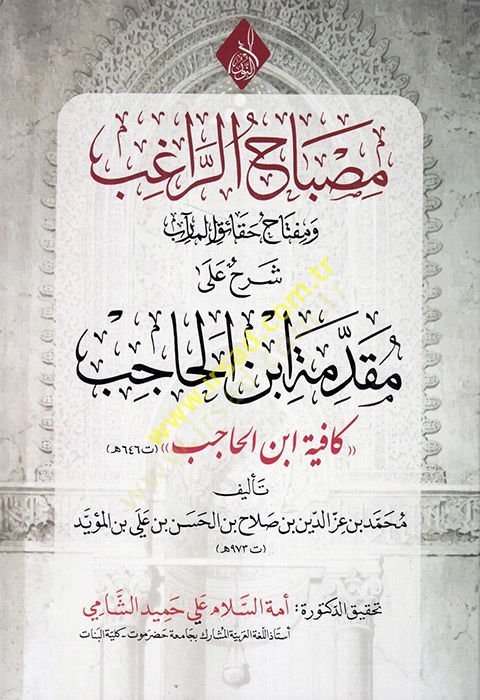 مِصْبَاحُ الرَّاغِب
وَمِفْتَاحُ حَقَائِقِ المَآرِب
شَرْحٌ عَلَى
مُقَدِّمَةِ ابْنِ الحَاجِبِ
«كافية ابن الحاجب» (ت٦٤٦هـ)
تأليف
مُحَمَّد بن عِزّ الدّين بن صَلاح بن الحَسَن بن عَلي بن المُؤيَّد
(ت٩٧٣هـ)
تحقيق الدكتورة: أمة السلام علي حميد الشامي
أستاذ اللغة العربية المشارك بجامعة حضرموت - كلية البنات